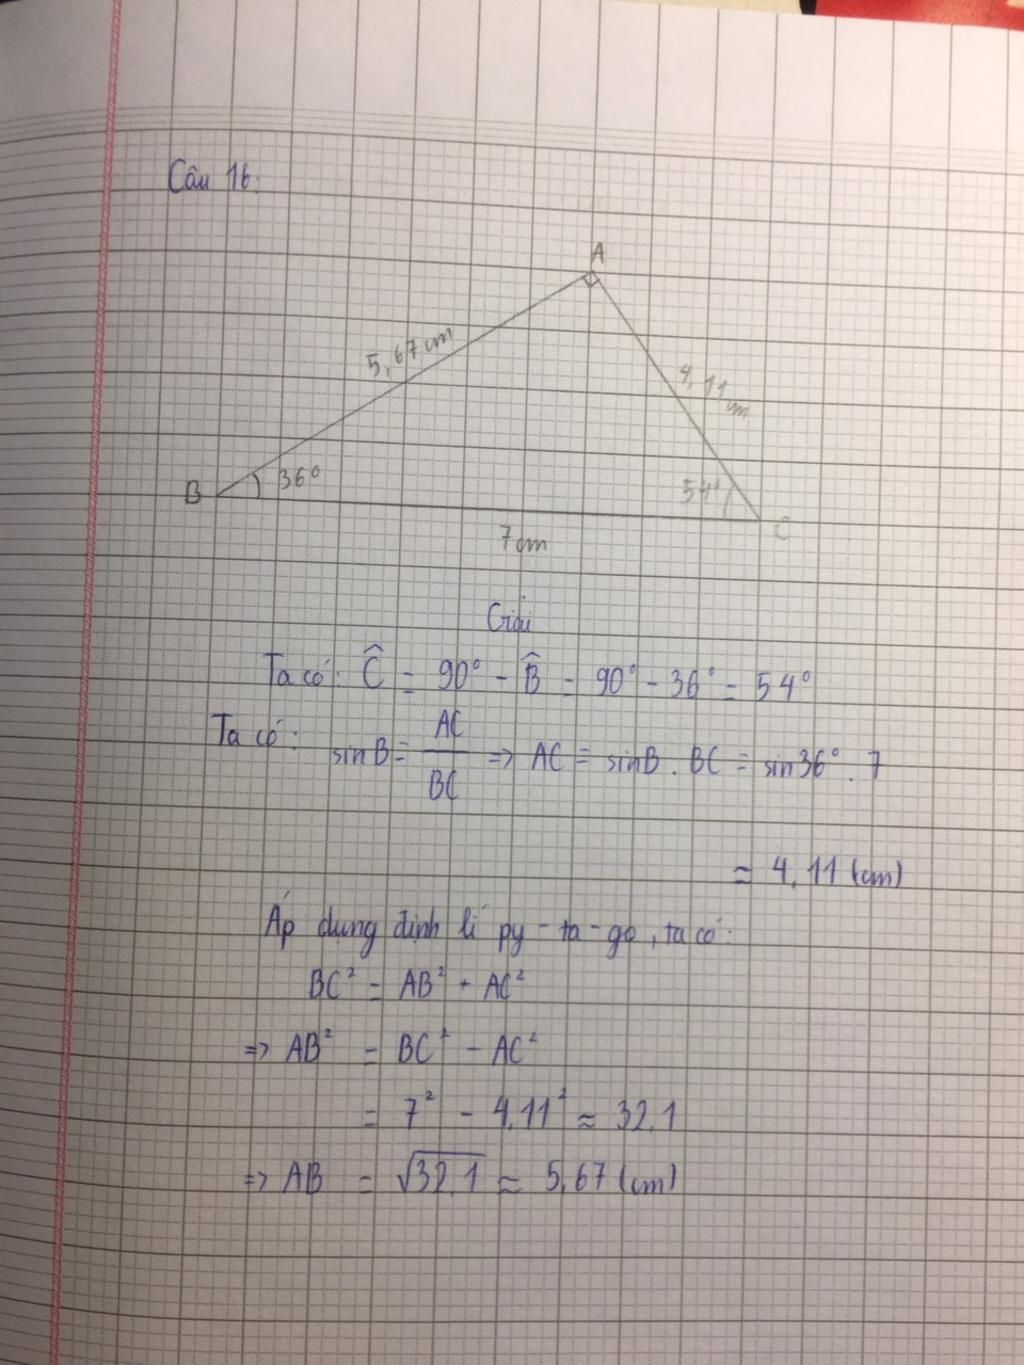 Câu 16:
A
5,67 cm
4,11 cm
B
36°
54°
C
7 cm
Giải
Ta có: Ĉ = 90° - B̂ = 90° - 36° = 54°
Ta có: sin B = AC/BC => AC = sin B . BC = sin 36° . 7
≈ 4,11 (cm)
Áp dụng định lí py-ta-go, ta có:
BC² = AB² + AC²
=> AB² = BC² - AC²
= 7² - 4,11² ≈ 32,1
=> AB = √32,1 ≈ 5,67 (cm)